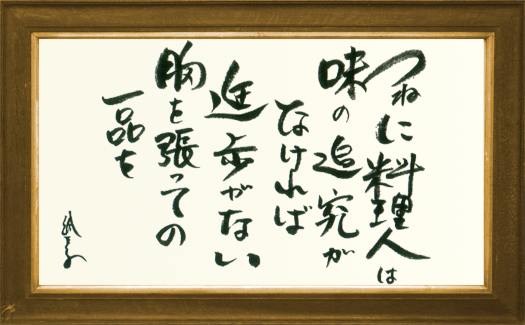 つねに料理人は
味の追究が
なければ
進歩がない
胸を張っての
一品を